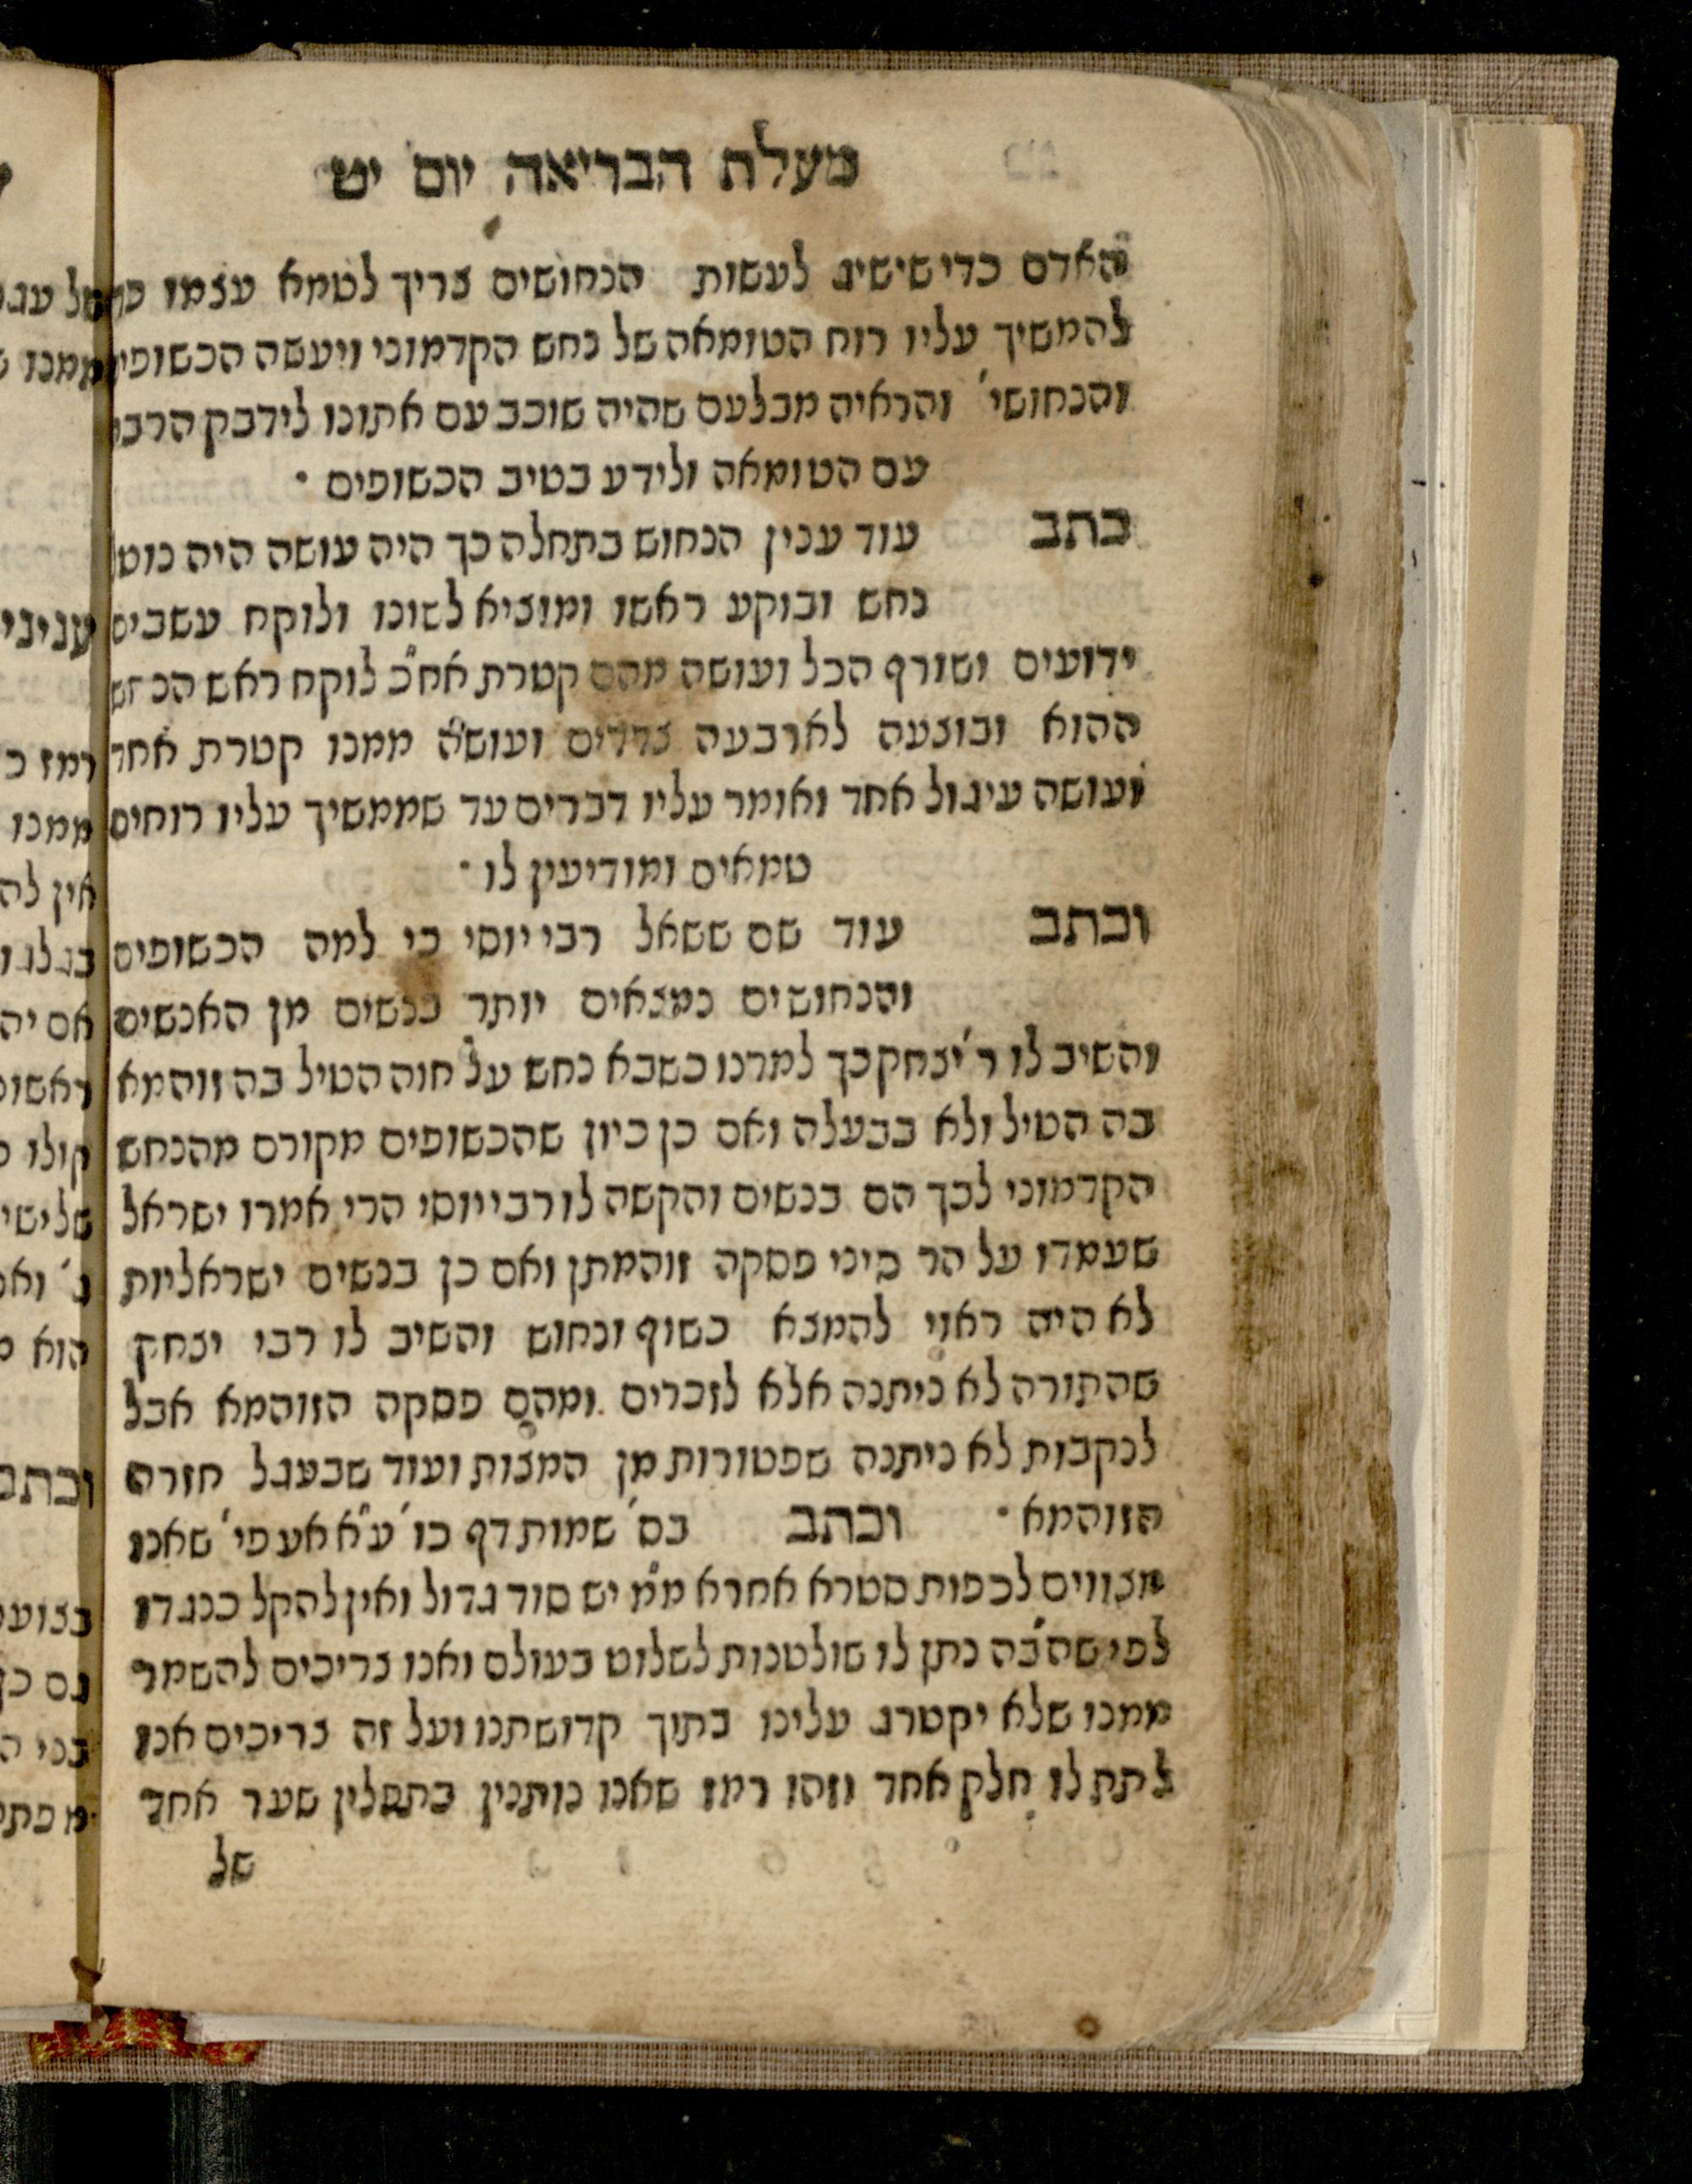 מעלת הבריאה יום יט
האדם כדי שישיג לעשות הנחושים צריך לטמא עצמו
להמשיך עליו רוח הטומאה של נחש הקדמוני ויעשה הכשופי
והנחושי' והראיה מבלעם שהיה שוכב עם אתונו לידבק הרבה
עם הטומאה ולידע בטיב הכשופים ·
כתב עוד ענין הנחוש בתחלה כך היה עושה היה נוטל
נחש ובוקע ראשו ומוציא לשונו ולוקח עשבים
ידועים ושורף הכל ועושה מהם קטרת אח"כ לוקח ראש הנחש
ההוא ובוצעה לארבעה צדדים ועושה ממנו קטרת אחר
ועושה עיגול אחד ואומר עליו דברים עד שממשיך עליו רוחים
טמאים ומודיעין לו ·
וכתב עוד שם ששאל רבי יוסי כי למה הכשופים
והנחושים נמצאים יותר בנשים מן האנשים
והשיב לו ר' יצחק כך למדנו כשבא נחש על חוה הטיל בה זוהמא
בה הטיל ולא בבעלה ואם כן כיון שהכשופים מקורם מהנחש
הקדמוני לכך הם בנשים והקשה לו רבי יוסי הרי אמרו ישראל
שעמדו על הר סיני פסקה זוהמתן ואם כן בנשים ישראליות
לא היה ראוי להמצא כשוף ונחוש והשיב לו רבי יצחק
שהתורה לא ניתנה אלא לזכרים ומהם פסקה הזוהמא אבל
לנקבות לא ניתנה שפטורות מן המצות ועוד שבעגל חזרה
הזוהמא · וכתב בס' שמות דף כו' ע"א אע פי' שאנו
מצווים לכפות סטרא אחרא מ"מ יש סוד גדול ואין להקל כנגדו
לפי שהב"ה נתן לו שולטנות לשלוט בעולם ואנו צריכים להשמר
ממנו שלא יקטרג עלינו בתוך קדושתנו ועל זה צריכים אנו
לתת לו חלק אחד וזהו רמז שאנו נותנין בתפלין שער אחד
של